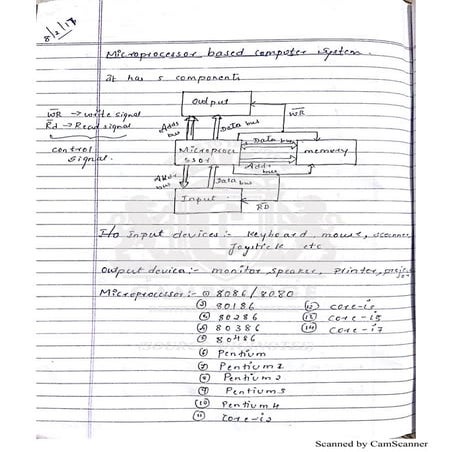 8/2/17
Microprocessor based computer system.
It has 5 components
Output
WR → write signal
Rd → Read signal
control signal.
Addr bus
Data bus
WR
Microprocessor
Data bus
Addr bus
memory
Addr bus
Data bus
Input
RD
I/o Input devices:- Keyboard, mouse, scanner
Joystick etc
Output device:- monitor, speaker, Printer, projector
Microprocessor:- ① 8086/8080
② 80186
③ 80286
④ 80386
⑤ 80486
⑥ Pentium
⑦ Pentium 1
⑧ Pentium 2
⑨ Pentium 3
⑩ Pentium 4
⑪ Core-i3
⑬ core-i5
⑭ core-i7
Scanned by CamScanner